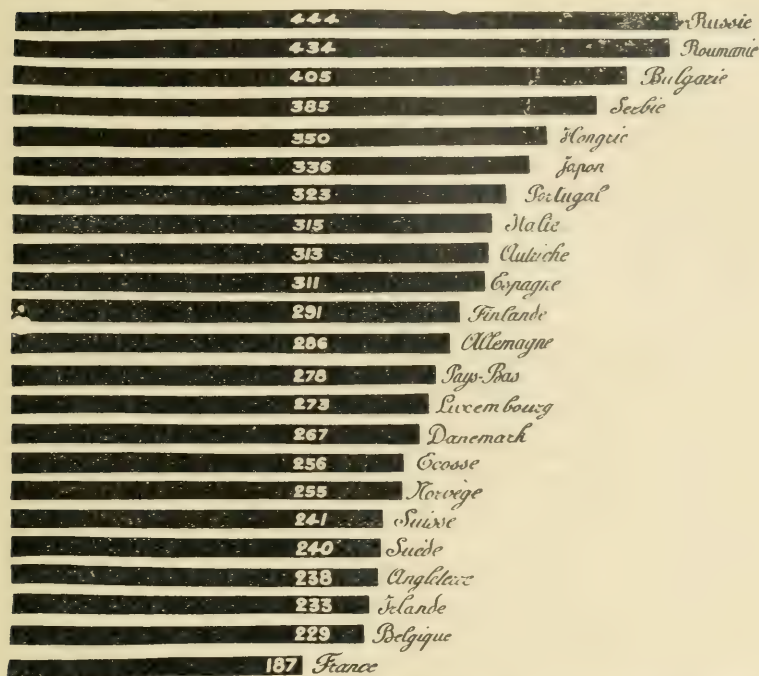 444 Russie
434 Roumanie
405 Bulgarie
385 Serbie
350 Hongrie
336 Japon
323 Portugal
315 Italie
313 Autriche
311 Espagne
291 Finlande
286 Allemagne
278 Pays-Bas
273 Luxembourg
267 Danemark
256 Ecosse
255 Norvège
241 Suisse
240 Suède
238 Angleterre
233 Irlande
229 Belgique
187 France